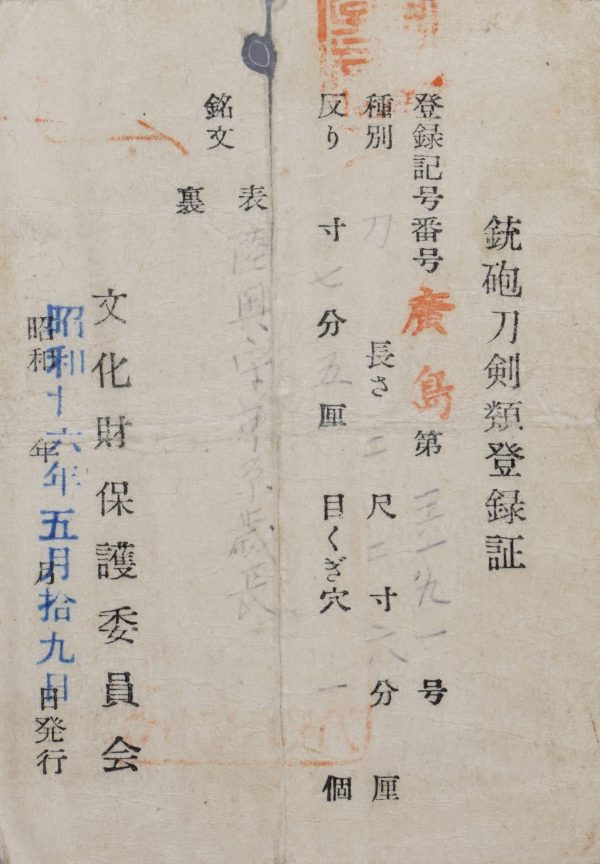 銃砲刀剣類登録証
登録記号番号 廣島 第 号
種別 刀 長さ 二尺二寸六分 厘
反り 寸七分五厘 目くぎ穴 一 個
銘文 表 陸奥守藤原歳長
裏
文化財保護委員会
昭和 年 月 日発行
昭和廿六年五月拾九日